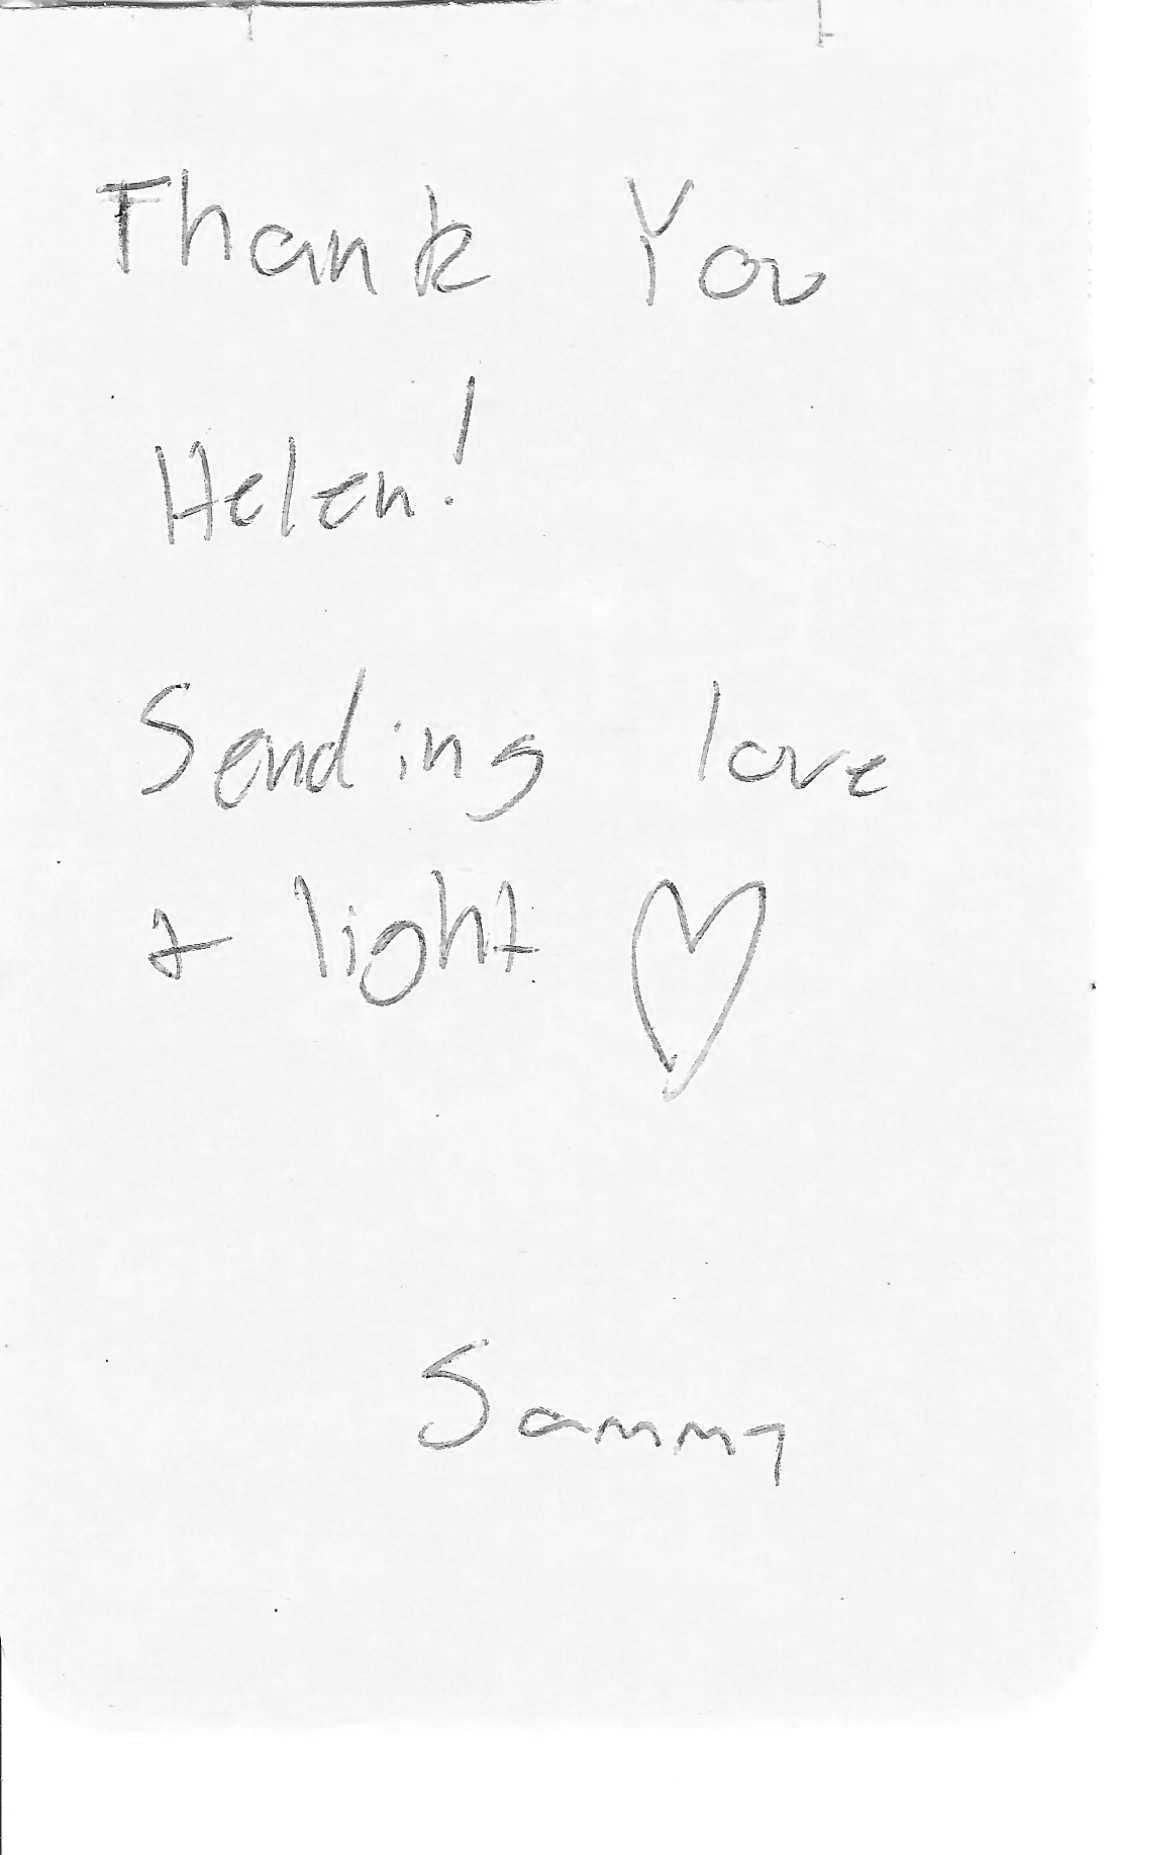 Thank You
Helen!
Sending love
+ light ♡
Sammy